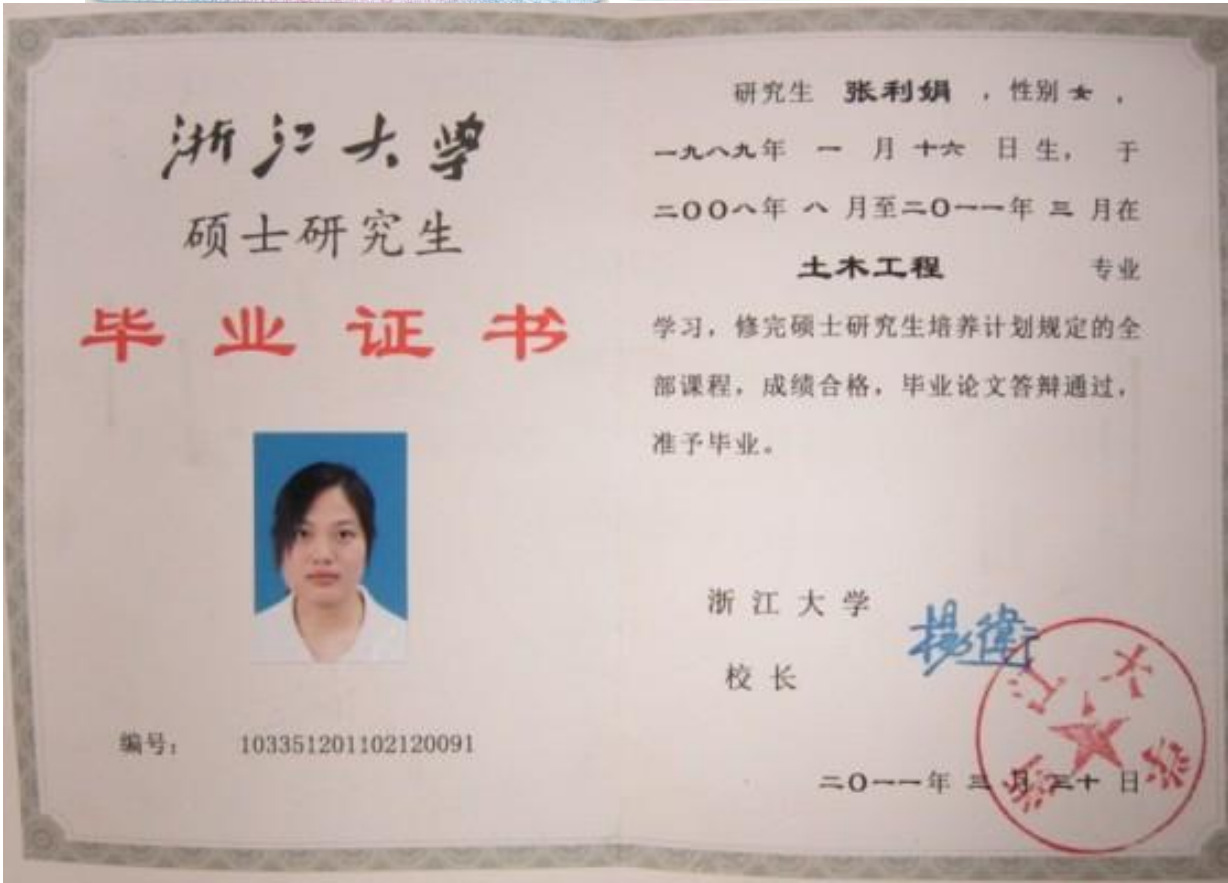 浙江大学
硕士研究生
毕业证书
编号: 103351201102120091
研究生 张利娟 ，性别 女 ，
一九八九年 一 月 十六 日 生， 于
二00八年 八 月至二0一一年 三 月在
土木工程 专业
学习，修完硕士研究生培养计划规定的全
部课程，成绩合格，毕业论文答辩通过，
准予毕业。
浙 江 大 学
校 长
楊衛
二0一一年 三 月 三十 日
浙江大学